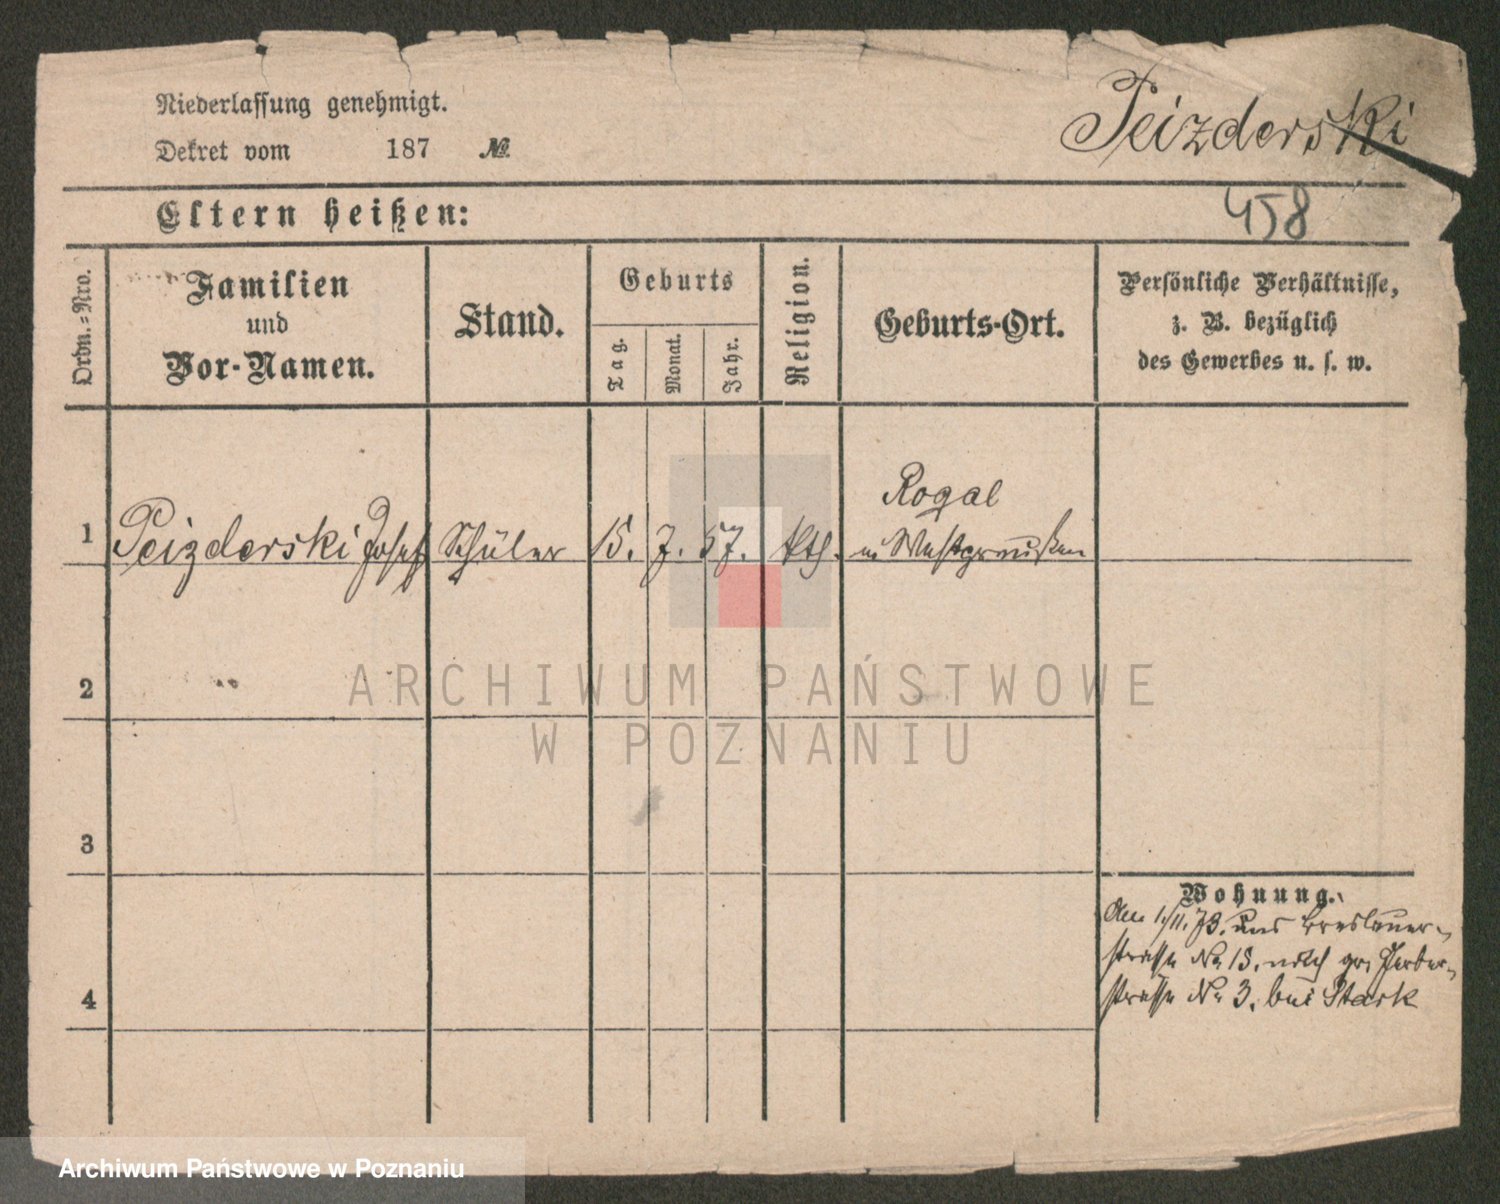 Niederlassung genehmigt.
Dekret vom 187 №
Peizderski
458
Eltern heißen:
Ordn.=Nro.
Familien
und
Vor-Namen.
Stand.
Geburts
Tag.
Monat.
Jahr.
Religion.
Geburts-Ort.
Persönliche Verhältnisse,
z. B. bezüglich
des Gewerbes u. s. w.
1 Peizderski Josef Schüler 15. 7. 57. kth.
Rogal
in Westpreußen
2
3
4
Wohnung.
Am 1./11. 73. aus Breslauer-
strasse № 15. nach gr. Gerber-
strasse № 3. bei Stark
ARCHIWUM PAŃSTWOWE
W POZNANIU
Archiwum Państwowe w Poznaniu